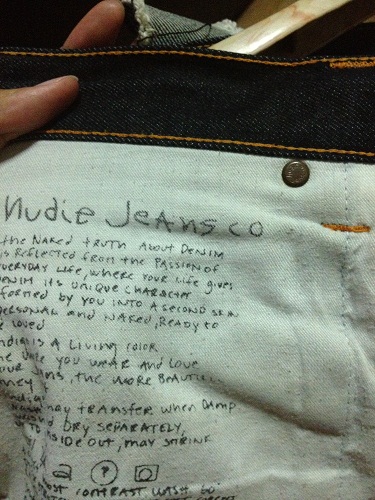 Nudie Jeans co
the NAKED truth About DENIM
is Reflected from the PASSION of
EVERYDAY LIFE, where YOUR Life gives
DENIM its UNIQUE CHARACTER
formed by YOU INTO A SECOND SKIN
PERSONAL and NAKED, READY to
be loved
Indigo is A LIVING COLOR
the more you WEAR AND LOVE
YOUR JEANS, the more BEAUTI
may transfer when Damp
DRY SEPARATELY,
INSIDE OUT, may SHRINK
most CONTRAST WASH GO